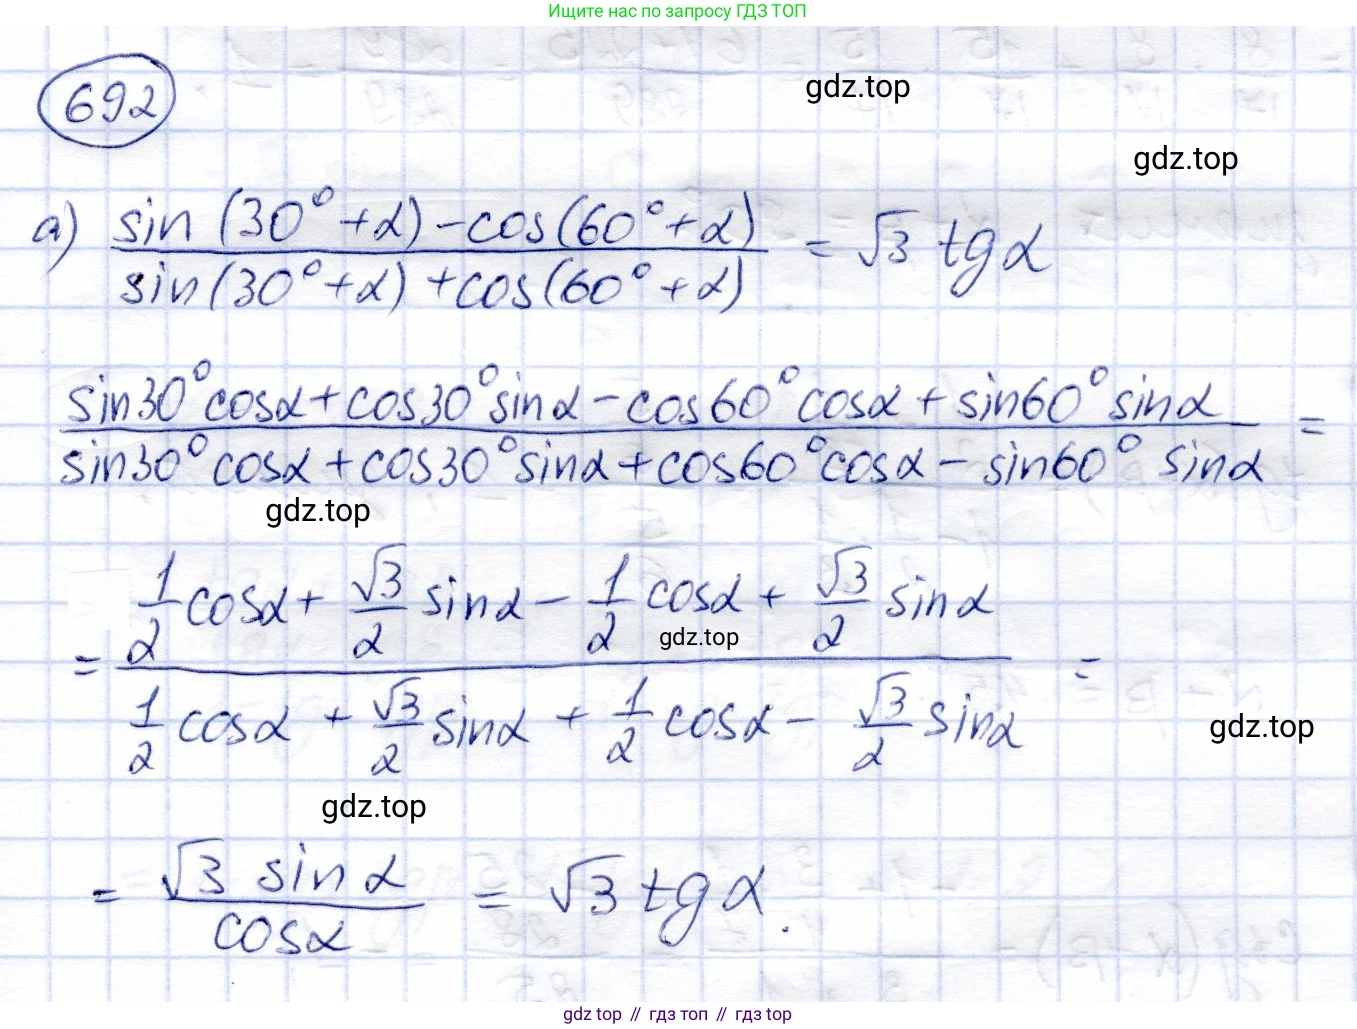 Ищите нас по запросу ГДЗ ТОП
692
gdz.top
gdz.top
а) (sin(30° + α) - cos(60° + α)) / (sin(30° + α) + cos(60° + α)) = √3 tg α
(sin30° cosα + cos30° sinα - cos60° cosα + sin60° sinα) / (sin30° cosα + cos30° sinα + cos60° cosα - sin60° sinα) =
gdz.top
= (1/2 cosα + √3/2 sinα - 1/2 cosα + √3/2 sinα) / (1/2 cosα + √3/2 sinα + 1/2 cosα - √3/2 sinα) =
gdz.top
gdz.top
gdz.top
= √3 sin α / cosα = √3 tg α.
gdz top // гдз топ // gdz top